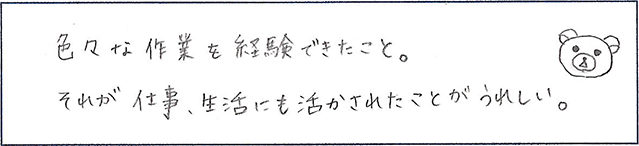 色々な作業を経験できたこと。
それが仕事、生活にも活かされたことがうれしい。